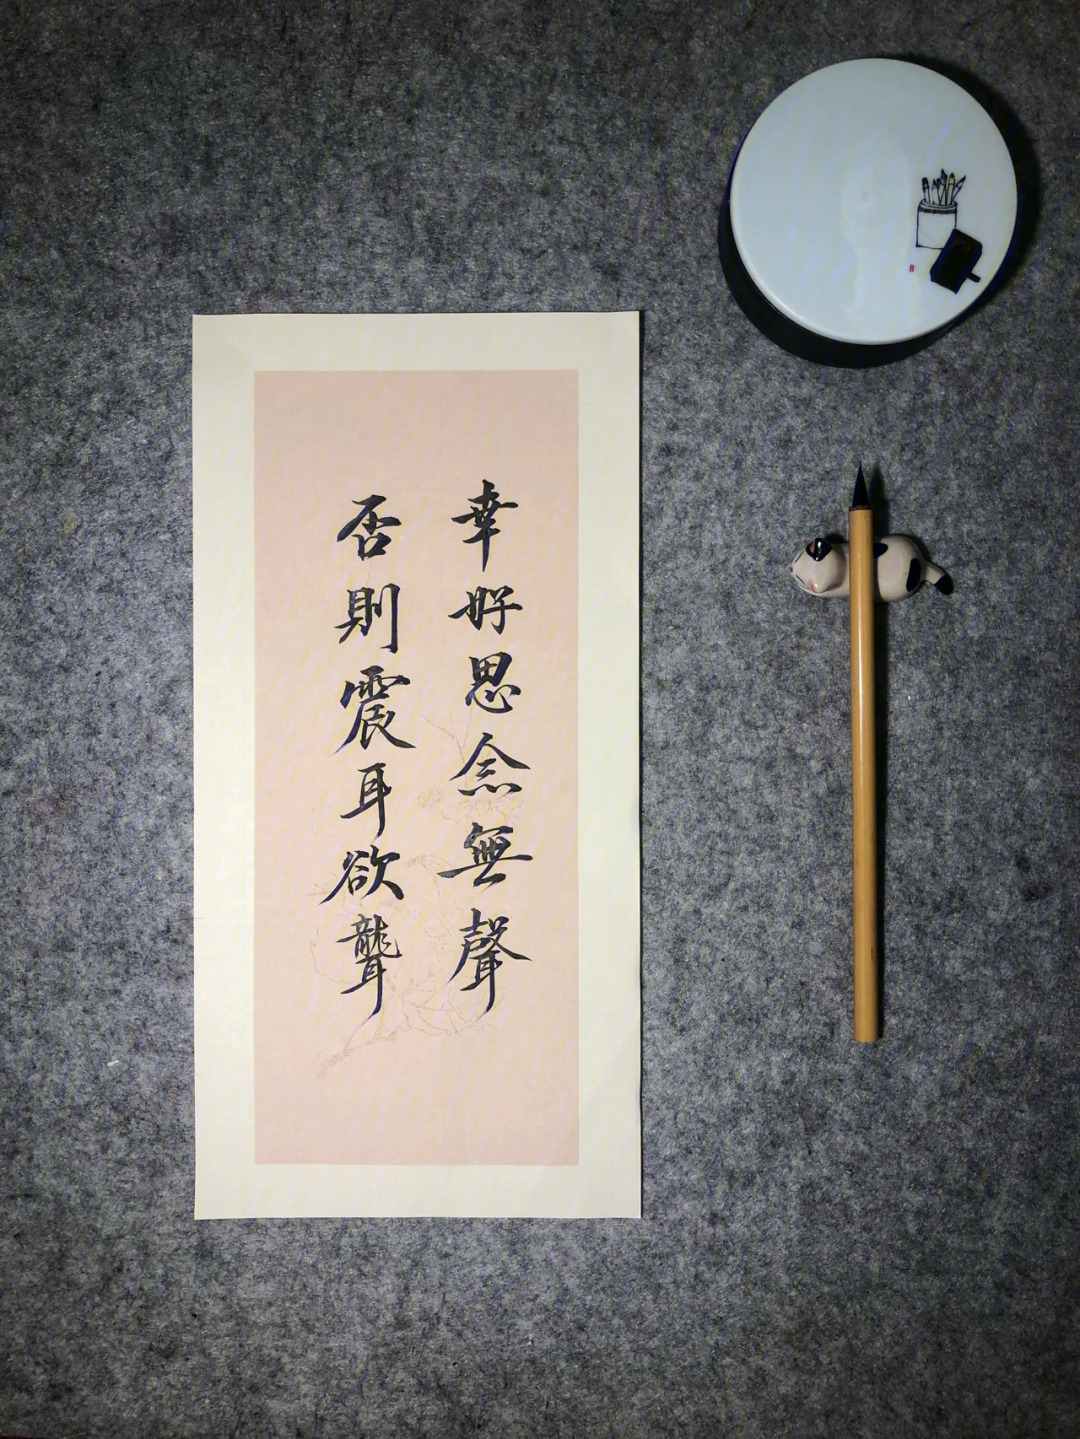 幸好思念無聲
否則震耳欲聾